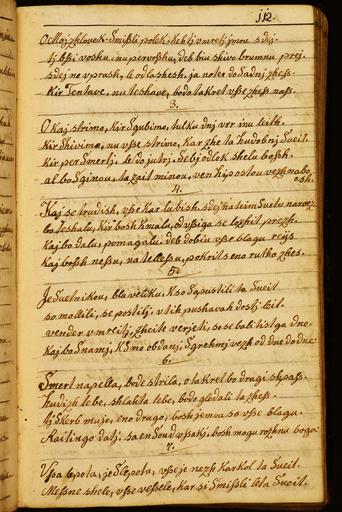 112.
O Moj zhlovek smissli polek, keb tj vmretj jmou sdej
tj bssi vosku, nu pervorshku, deb biu shivo brumnu prej.
sdej ne vprash, le odlashesh, ja noter do Sadnj zhess.
Kir Tentave, nu teshave, bodo takret vsse zhess nass.
3.
O kaj strimo, kir Sgubimo, tulku dnj vrr inu leith.
Kir Shivimo, nu vsse strimo, kar zhe ta hudobnj Sveit.
Kir per Smertj, le do jutrj, sebj odlok shelu bossh
al bo Sginou, ta zait minou, ven
4.
Kaj se trudish, vsse kar lubish, sdej na tem Svetu
bo teshalu, kir bosh kwalu, od vsiga se lozhit prezh.
Kaj bo dalu, pomagalu, deb dobiu vsse blagu
Kaj bossh nessu, na tellessu, pokrit s eno rutko zhes.
5.
Je Svetnikou, bla veliku, K so Spustili ta Sveit
so mollili, se postilj, v tih pushavah dostj leit.
vender vmreitj, zheite verjeti, so se bali tistga dne
kaj bo Snamj, K smo obdanj, Sgrehmj vezh od dne do dne
6.
Smert napella, bode strila, o takret bo drugi shpass.
hudizh tebe, shlahta tebe, bodo gledali ta zhess.
tj Skerb muje, eno drugo, bosh jemou sa vsse blagu
Raitingo datj, sa en Soud vssakj, bosh mogu
7.
Vssa lepota, je Slepota, vsse je nezh karkol ta Sveit.
Messne shele, vsse vessele, kar si Smisslè leta Sveit.